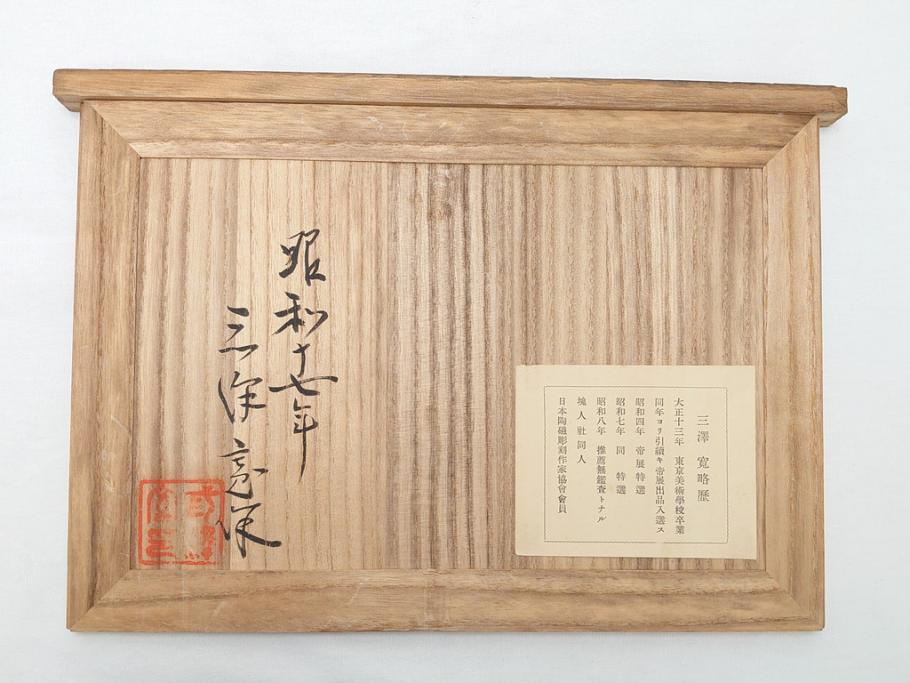 三澤 寛略歴
大正十三年 東京美術學校卒業
同年ヨリ引續キ帝展出品入選ス
昭和四年 帝展特選
昭和七年 同 特選
昭和八年 推薦無鑑査トナル
塊人社同人
日本陶磁彫刻作家協會會員
昭和十七年
三澤寛作